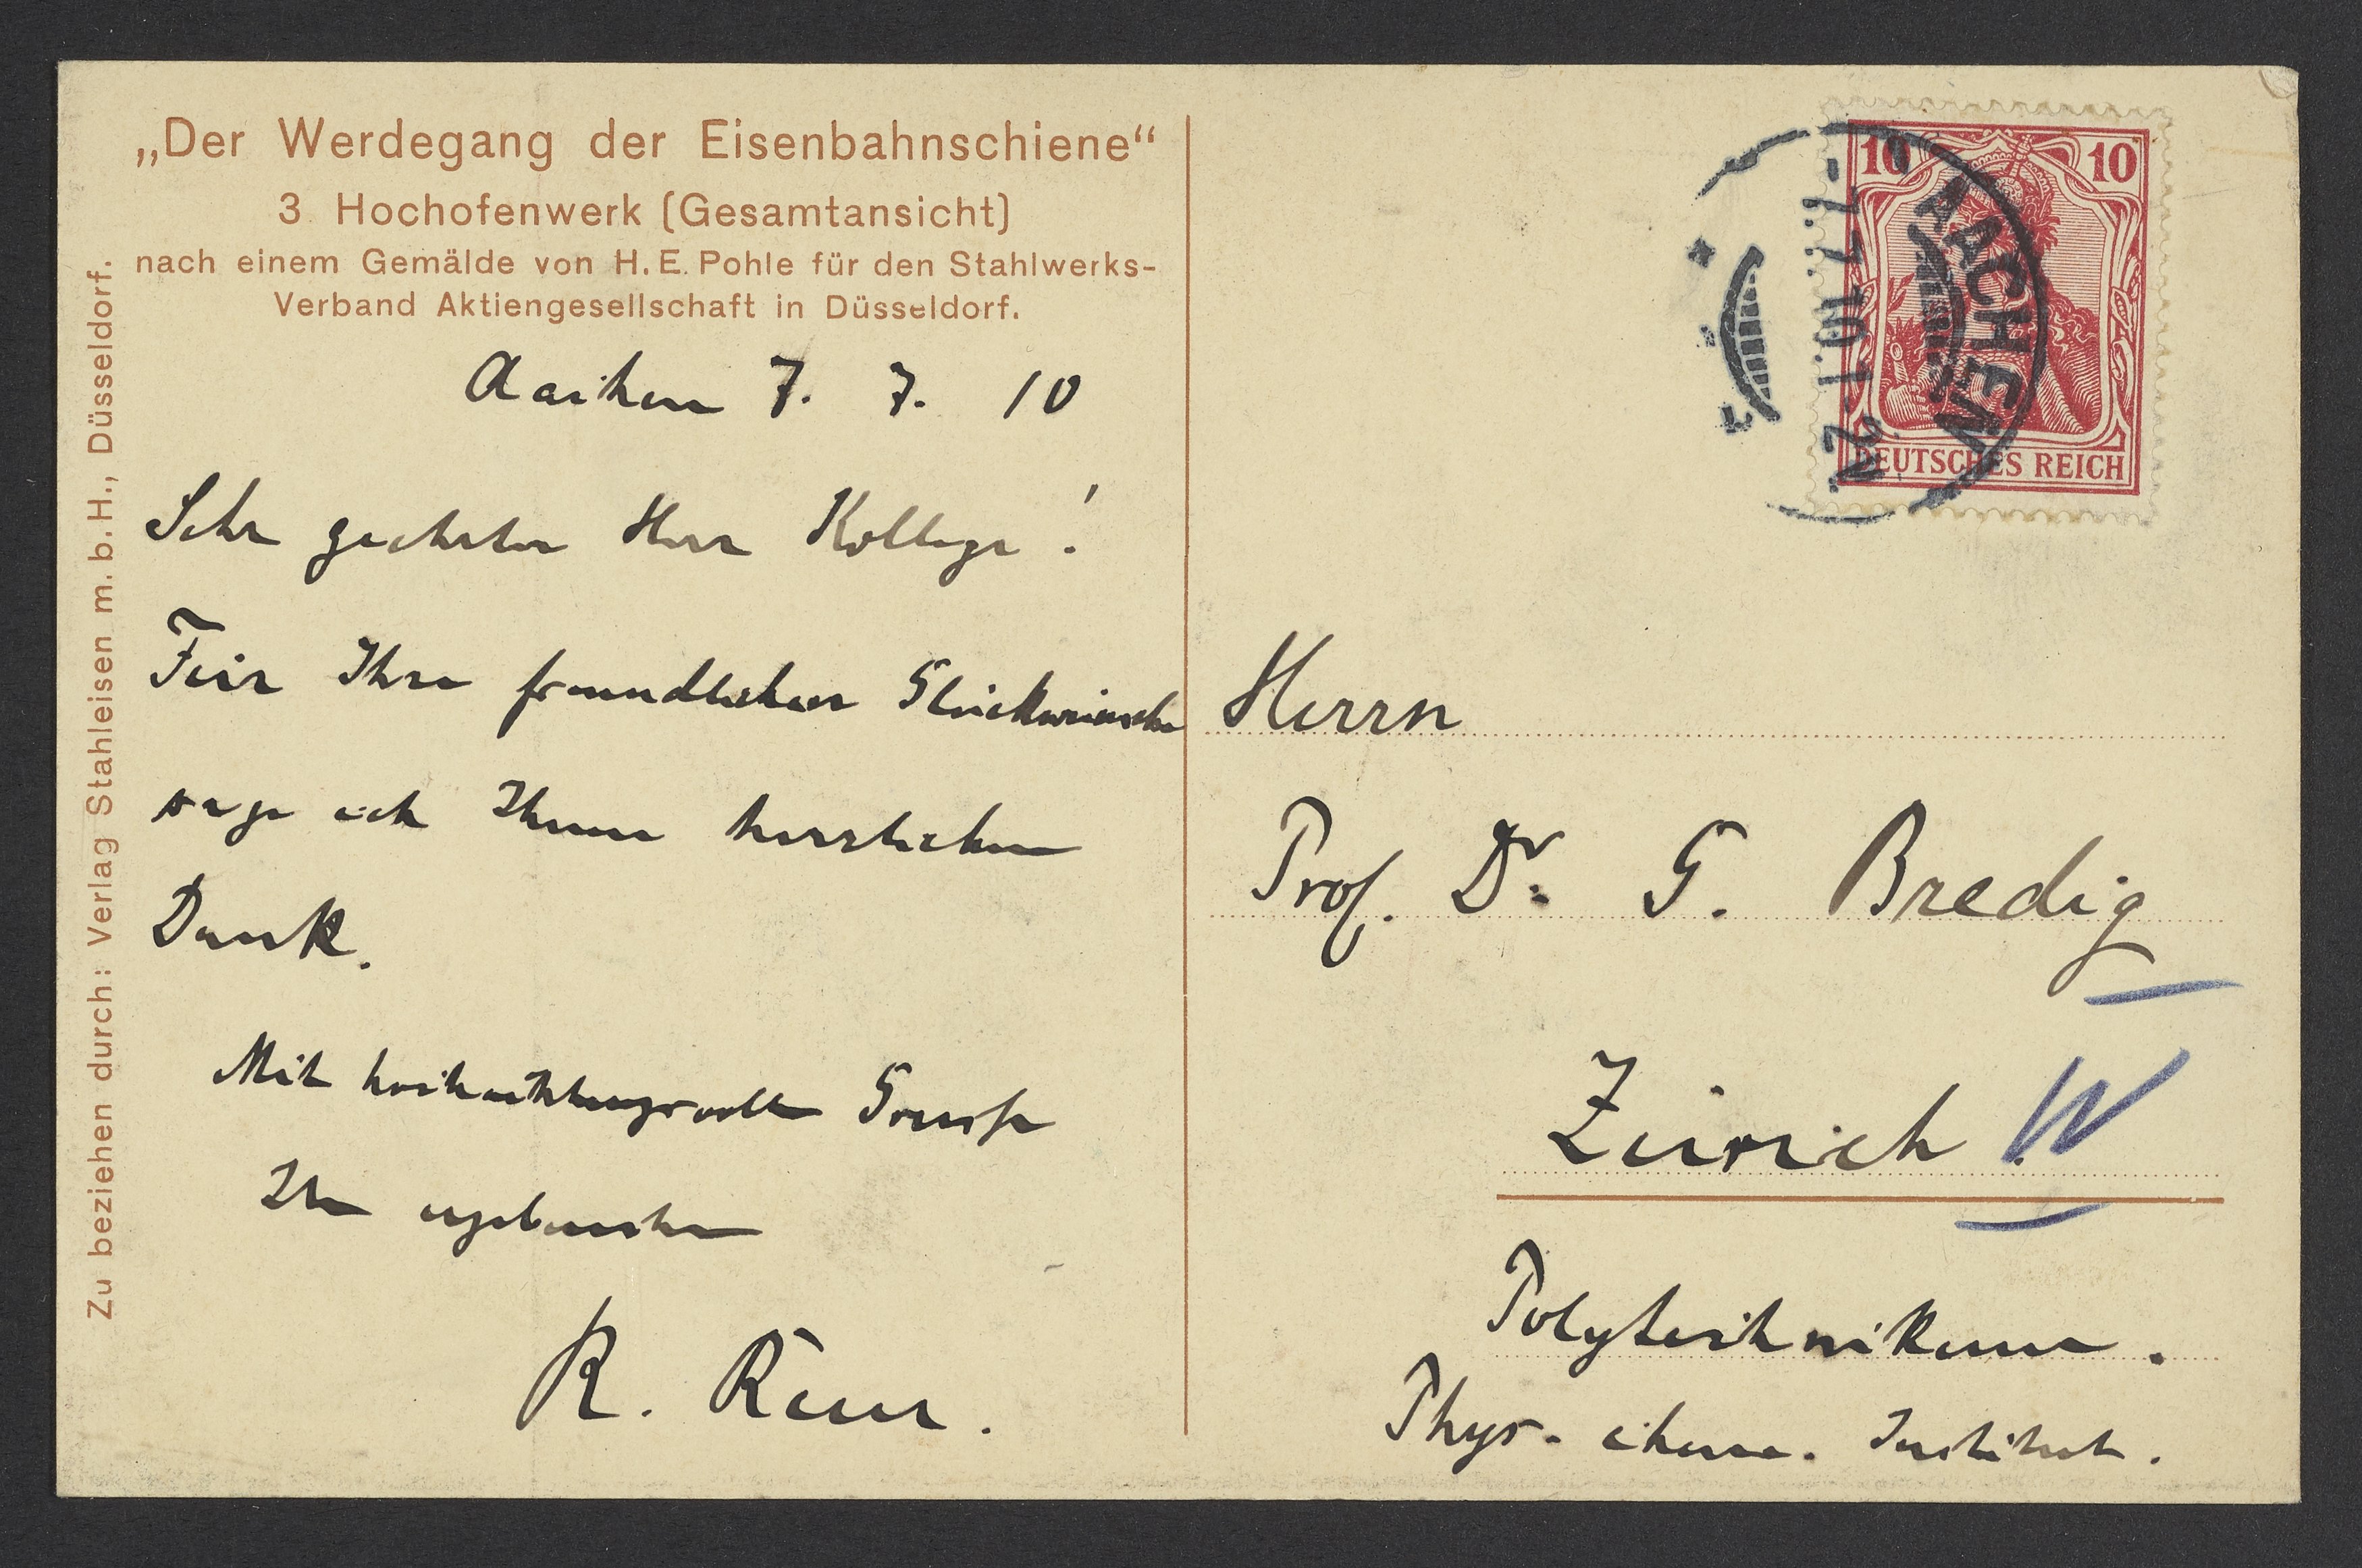 „Der Werdegang der Eisenbahnschiene“
3 Hochofenwerk (Gesamtansicht)
nach einem Gemälde von H. E. Pohle für den Stahlwerks-
Verband Aktiengesellschaft in Düsseldorf.
Zu beziehen durch: Verlag Stahleisen m. b. H., Düsseldorf.
Aachen 7. 7. 10
Sehr geehrter Herr Kollege!
Für Ihre freundlichen Glückwünsche
sage ich Ihnen herzlichen
Dank.
Mit hochachtungsvollem Grusse
Ihr ergebenster
R.
10 10
DEUTSCHES REICH
AACHEN
-7.7.10.1-2N.
Herrn
Prof. Dr. G. Bredig
Zürich W
Polytechnikum.
Phys. chem. Institut.